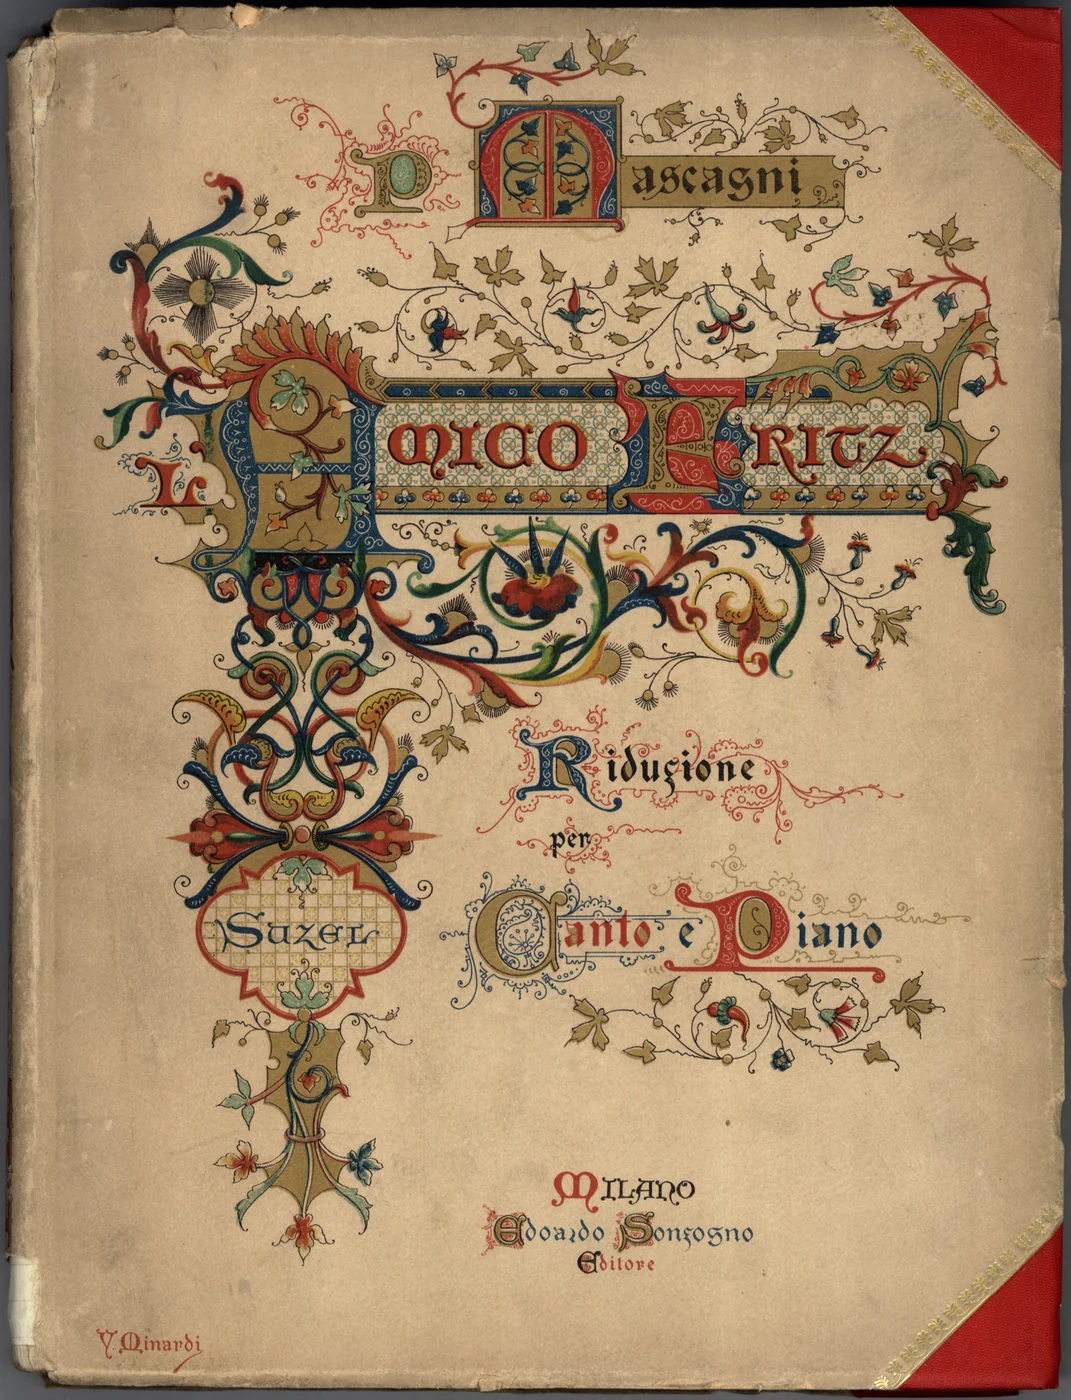 P Mascagni
L'AMICO FRITZ
Riduzione
per
Canto e Piano
SUZEL
MILANO
Edoardo Sonzogno
Editore
V. Minardi